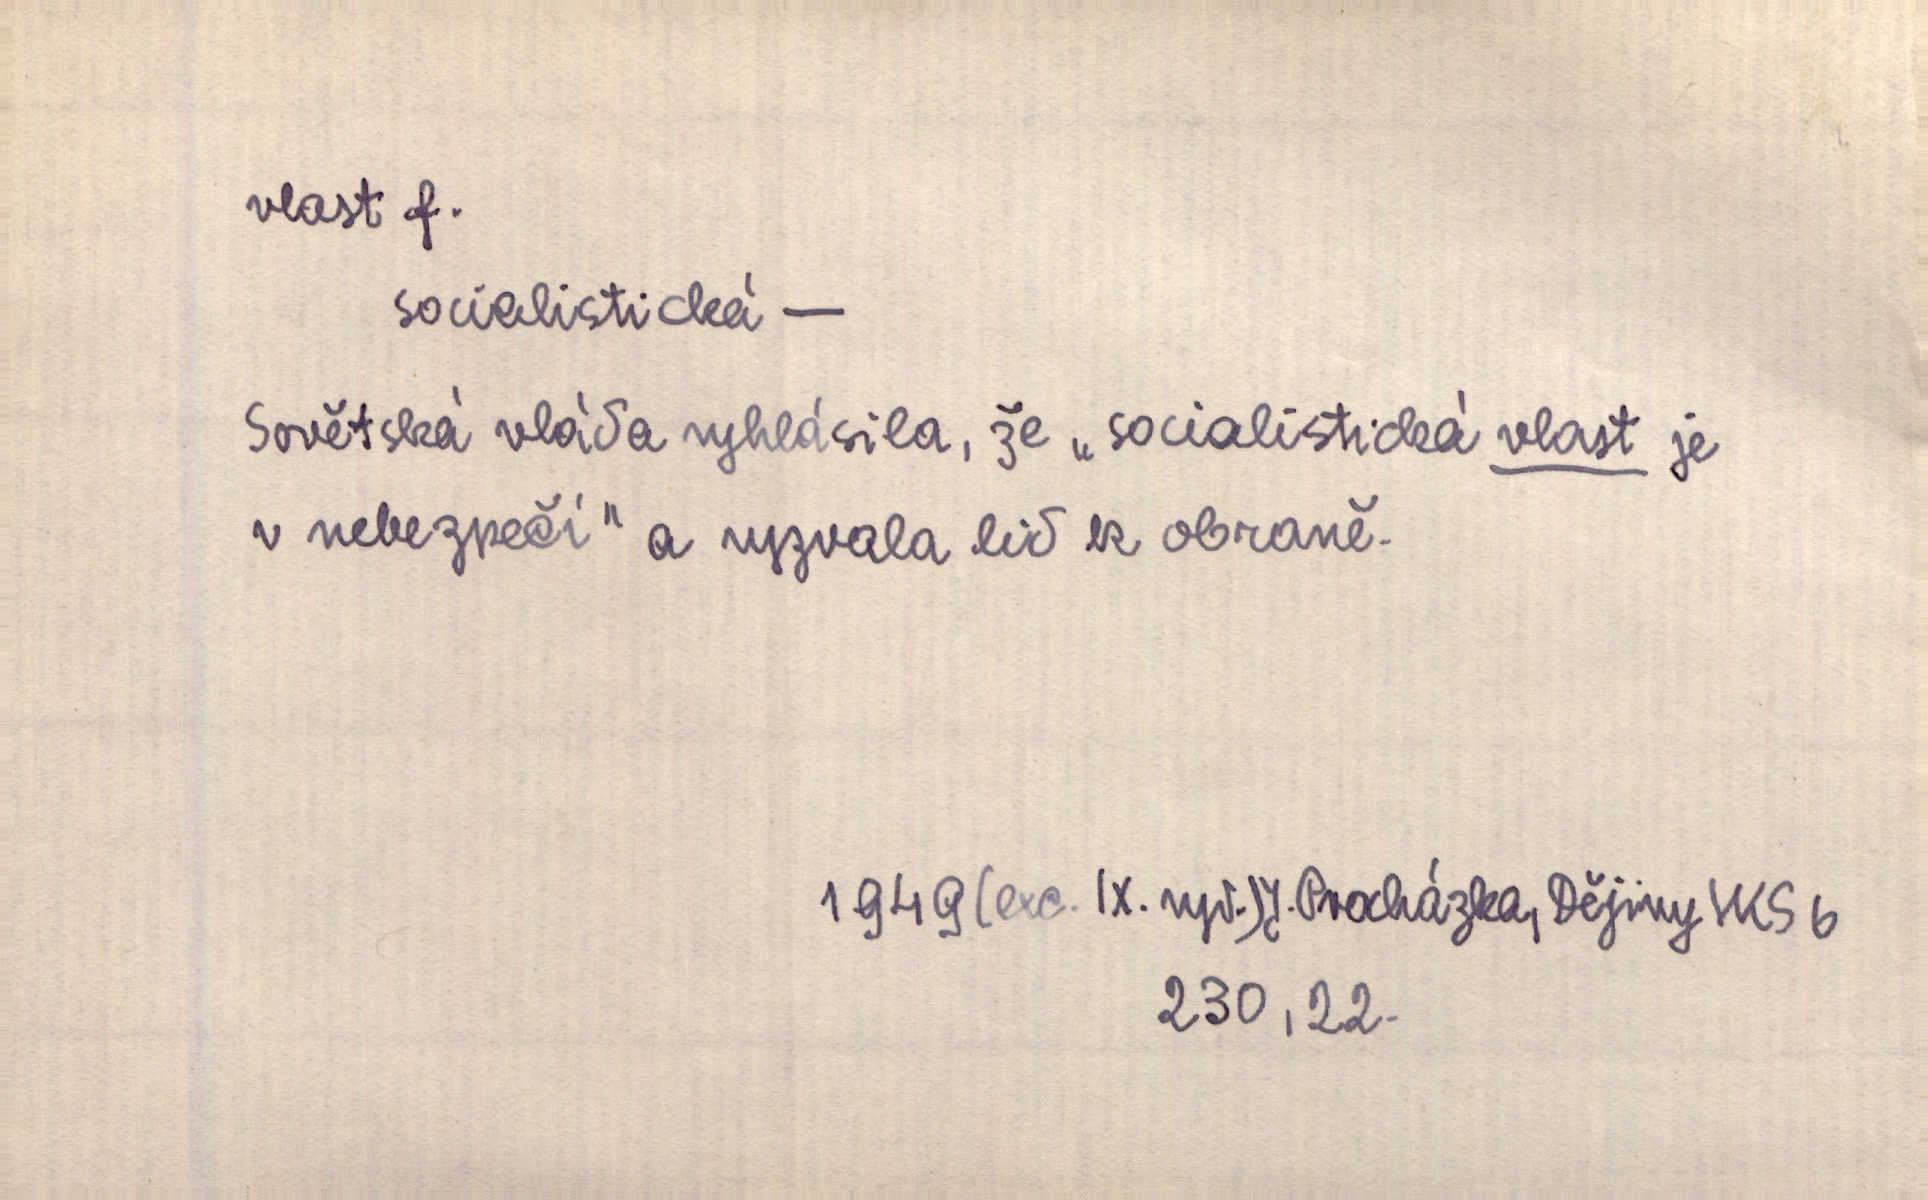 vlast f.
socialistická —
Sovětská vláda vyhlásila, že „socialistická vlast je
v nebezpečí" a vyzvala lid k obraně.
1949 (exc. IX. vyd.) J. Procházka, Dějiny VKS b
230, 22.